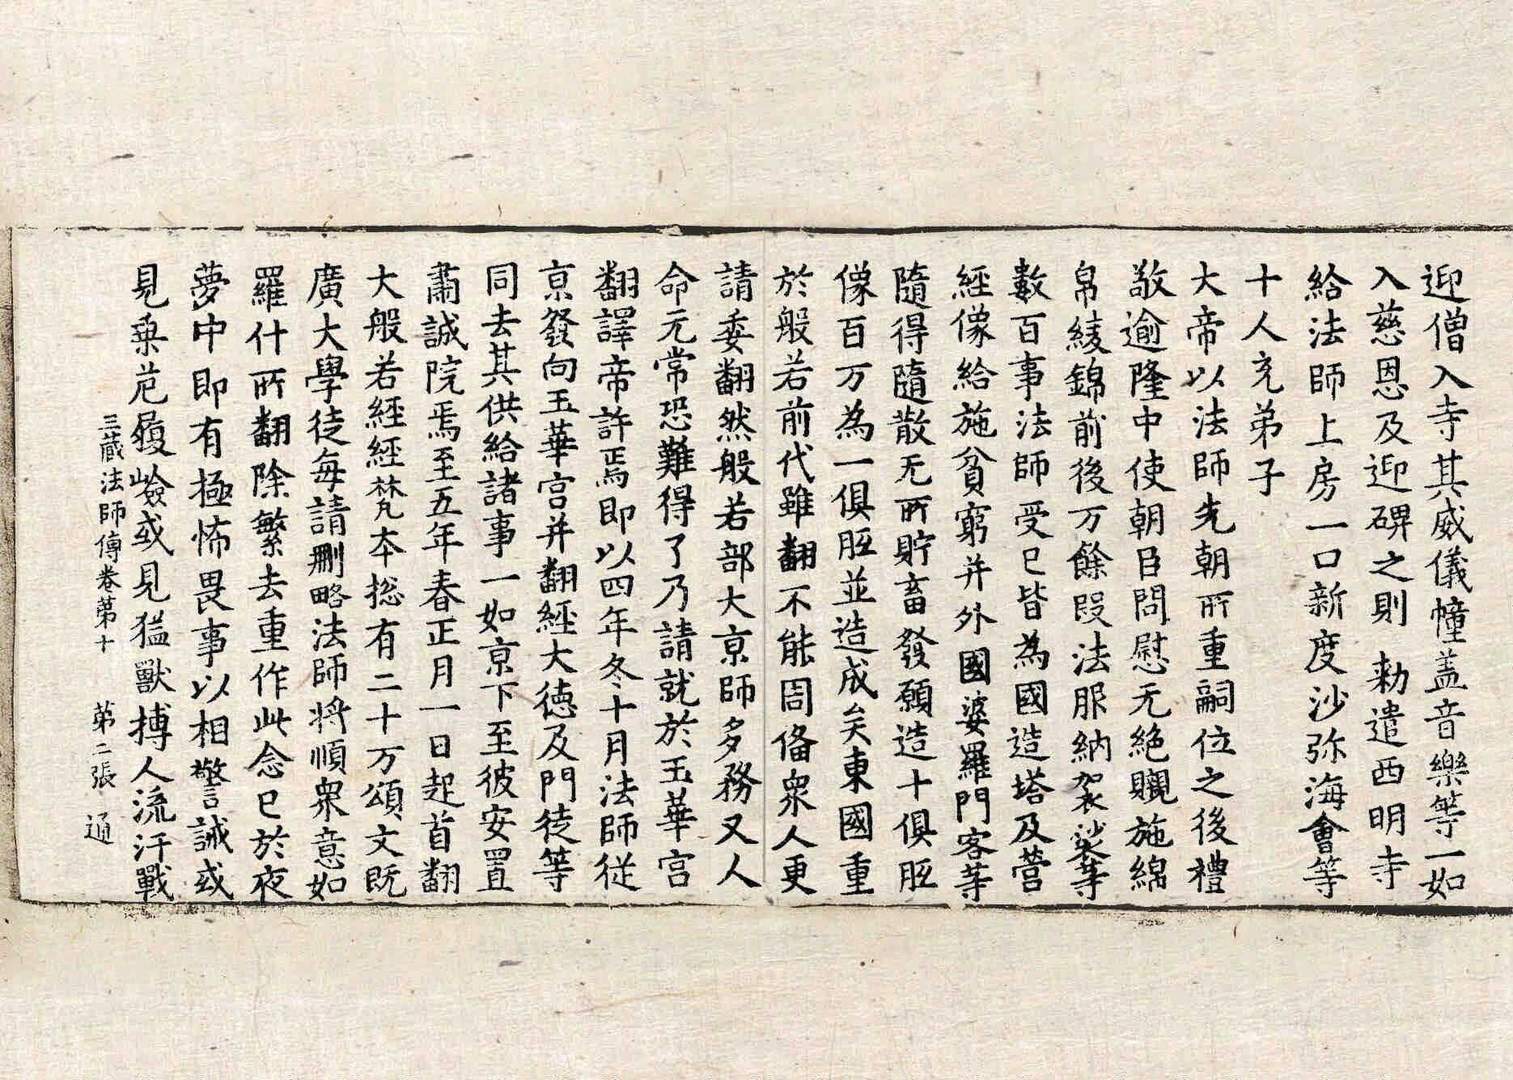 迎僧入寺其威儀幢盖音樂等一如
入慈恩及迎碑之則 勑遣西明寺
給法師上房一口新度沙弥海會等
十人充弟子
大帝以法師先朝所重嗣位之後禮
敬逾隆中使朝臣問慰无絶䞋施綿
帛綾錦前後万餘段法服納袈裟等
數百事法師受已皆為國造塔及营
經像給施貧窮并外國婆羅門客等
隨得隨散无所貯畜發願造十俱胝
像百万為一俱胝並造成矣東國重
於般若前代雖翻不能周俻衆人更
請委翻然般若部大京師多務又人
命无常恐難得了乃請就於玉華宫
翻譯帝許焉即以四年冬十月法師従
京發向玉華宫并翻經大德及門徒等
同去其供給諸事一如京下至彼安置
肅誠院焉至五年春正月一日起首翻
大般若經經梵本揔有二十万頌文既
廣大學徒每請刪略法師将順衆意如
羅什所翻除繁去重作此念已於夜
夢中即有極怖畏事以相警誡或
見乗危履嶮或見猛獸搏人流汗戰
三藏法師傳卷苐十 苐二張 通